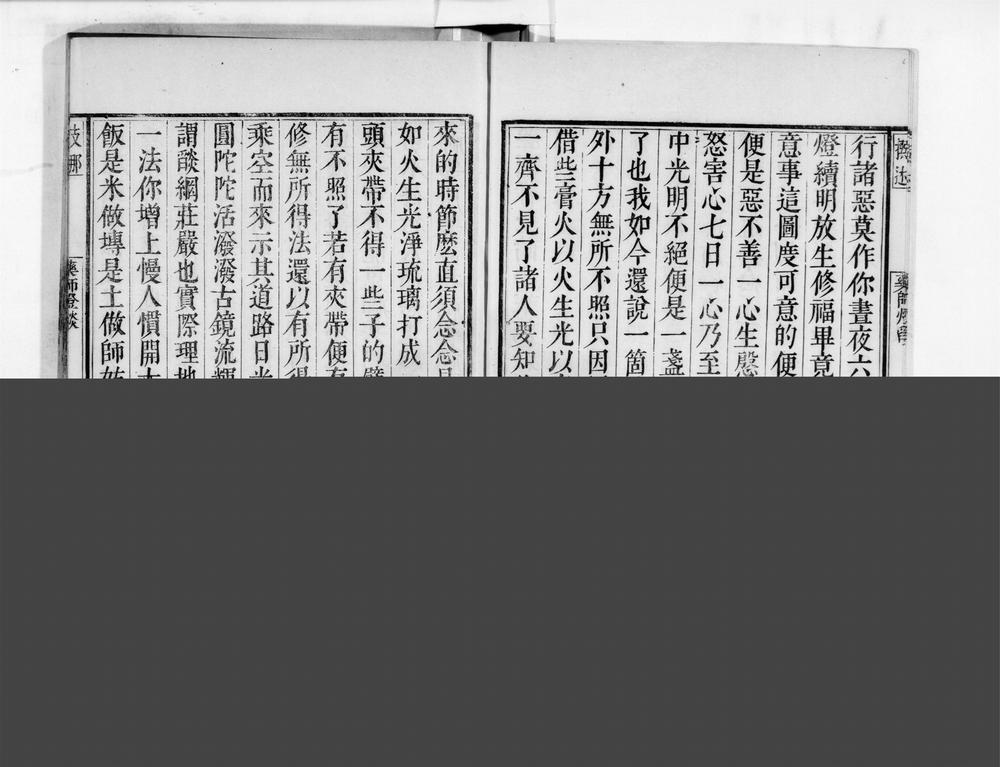 行諸惡莫作你晝夜六
燈續明放生修福畢竟
意事這圖度可意的便
便是惡不善一心生慇
怒害心七日一心乃至
中光明不絕便是一盞
了也我如今還說一箇
外十方無所不照只因
借些膏火以火生光以
一齊不見了諸人要知
來的時節麽直須念念
如火生光淨琉璃打成
頭夾帶不得一些子的
有不照了若有夾帶便有
修無所得法還以有所得
乘空而來示其道路日光
圓陀陀活潑潑古鏡流輝
謂燄網莊嚴也實際理地
一法你增上慢人慣開大
飯是米做塼是土做師姑